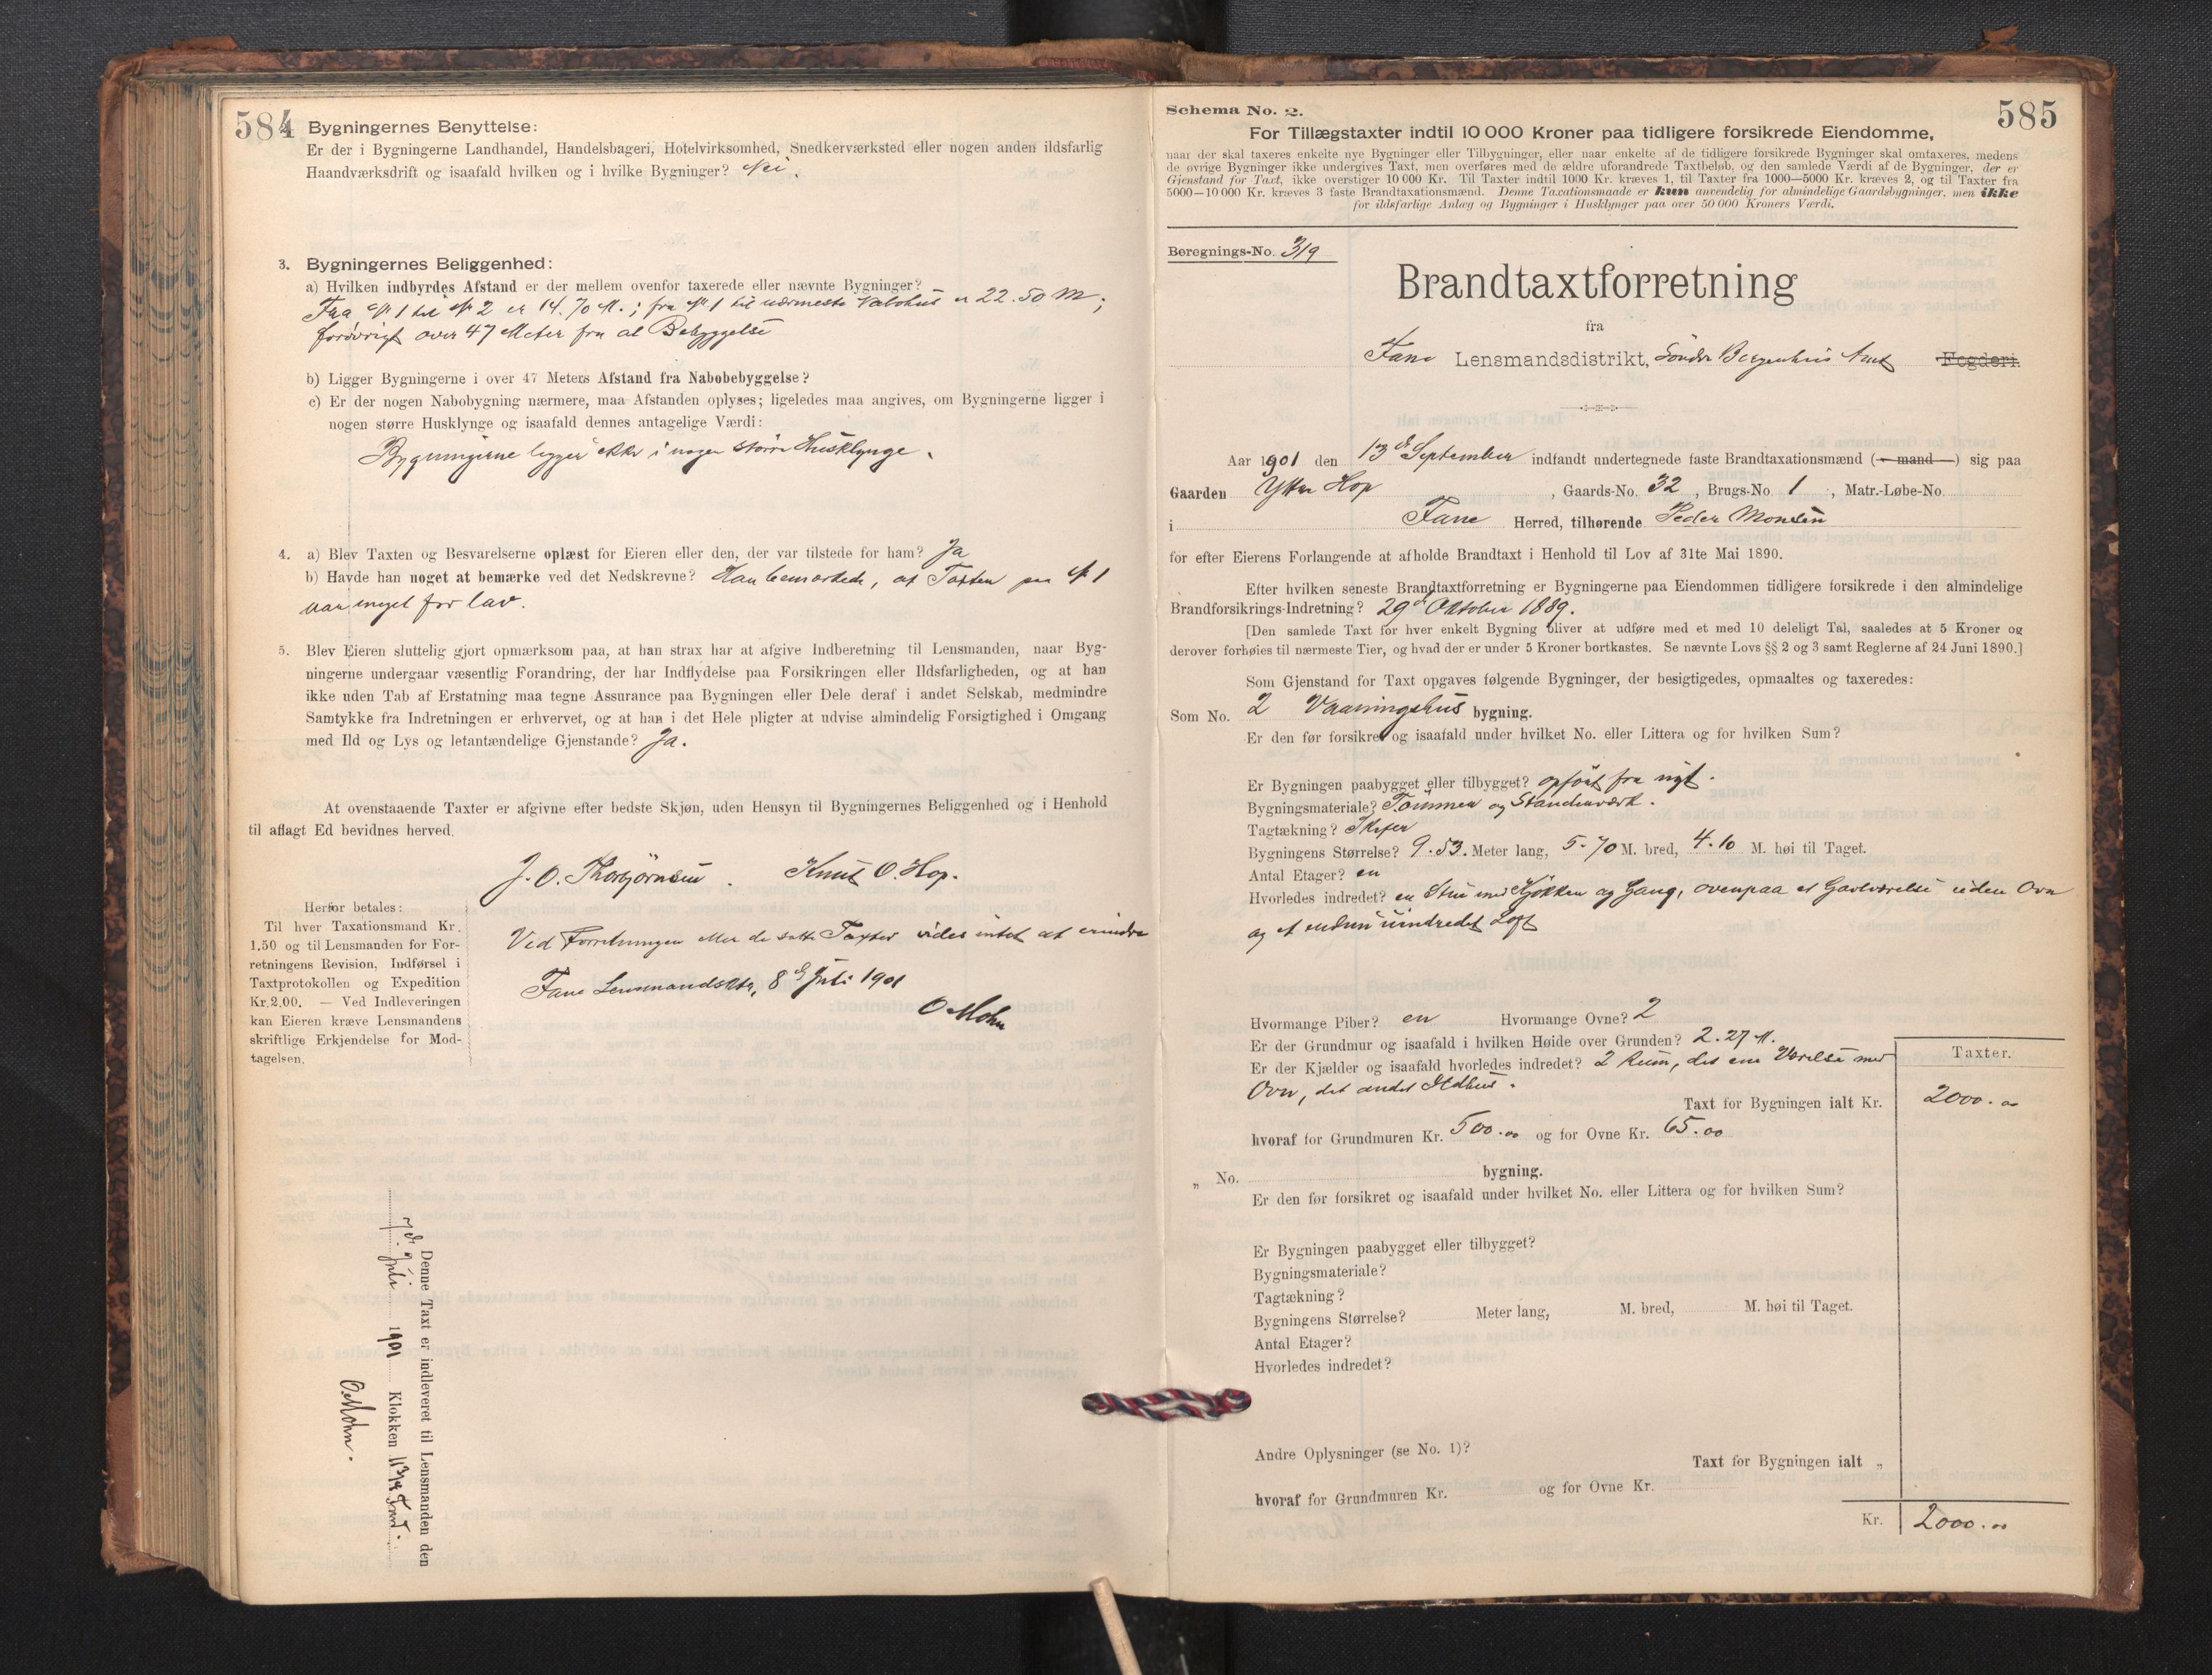 584
Bygningernes Benyttelse:
Er der i Bygningerne Landhandel, Handelsbageri, Hotelvirksomhed, Snedkerværksted eller nogen anden ildsfarlig
Haandværksdrift og isaafald hvilken og i hvilke Bygninger? Nei.
3. Bygningernes Beliggenhed:
a) Hvilken indbyrdes Afstand er der mellem ovenfor taxerede eller nævnte Bygninger?
Fra № 1 til № 2 er 14.70 M.; fra № 1 til nærmeste Nabohus er 22.50 M;
forøvrigt over 47 Meter fra al Bebyggelse
b) Ligger Bygningerne i over 47 Meters Afstand fra Nabobebyggelse?
c) Er der nogen Nabobygning nærmere, maa Afstanden oplyses; ligeledes maa angives, om Bygningerne ligger i
nogen større Husklynge og isaafald dennes antagelige Værdi:
Bygningerne ligger ikke i nogen større Husklynge.
4. a) Blev Taxten og Besvarelserne oplæst for Eieren eller den, der var tilstede for ham? Ja
b) Havde han noget at bemærke ved det Nedskrevne? Han bemærkede, at Taxten paa № 1
var meget for lav.
5. Blev Eieren sluttelig gjort opmærksom paa, at han strax har at afgive Indberetning til Lensmanden, naar Byg-
ningerne undergaar væsentlig Forandring, der har Indflydelse paa Forsikringen eller Ildsfarligheden, og at han
ikke uden Tab af Erstatning maa tegne Assurance paa Bygningen eller Dele deraf i andet Selskab, medmindre
Samtykke fra Indretningen er erhvervet, og at han i det Hele pligter at udvise almindelig Forsigtighed i Omgang
med Ild og Lys og letantændelige Gjenstande? Ja.
At ovenstaaende Taxter er afgivne efter bedste Skjøn, uden Hensyn til Bygningernes Beliggenhed og i Henhold
til aflagt Ed bevidnes herved.
J. O. Thorbjørnsen. Knut O. Hop.
Herfor betales:
Til hver Taxationsmand Kr.
1.50 og til Lensmanden for For-
retningens Revision, Indførsel i
Taxtprotokollen og Expedition
Kr. 2.00. — Ved Indleveringen
kan Eieren kræve Lensmandens
skriftlige Erkjendelse for Mod-
tagelsen.
Ved Forretningen eller de satte Taxter vides intet at erindre
Fane Lensmandsktr, 8de Juli 1901
O Mohn
Denne Taxt er indleveret til Lensmanden den
7de Juli 1901 Klokken 11 3/4 Form.
O Mohn.
585
Schema No. 2.
For Tillægstaxter indtil 10 000 Kroner paa tidligere forsikrede Eiendomme,
naar der skal taxeres enkelte nye Bygninger eller Tilbygninger, eller naar enkelte af de tidligere forsikrede Bygninger skal omtaxeres, medens
de øvrige Bygninger ikke undergives Taxt, men overføres med de ældre uforandrede Taxtbeløb, og den samlede Værdi af de Bygninger, der er
Gjenstand for Taxt, ikke overstiger 10 000 Kr. Til Taxter indtil 1000 Kr. kræves 1, til Taxter fra 1000—5000 Kr. kræves 2, og til Taxter fra
5000—10 000 Kr. kræves 3 faste Brandtaxationsmænd. Denne Taxationsmaade er kun anvendelig for almindelige Gaardsbygninger, men ikke
for ildsfarlige Anlæg og Bygninger i Husklynger paa over 50 000 Kroners Værdi.
Beregnings-No. 319
Brandtaxtforretning
fra
Fane Lensmandsdistrikt, Søndre Bergenhus Amt Fogderi.
Aar 1901 den 13de September indfandt undertegnede faste Brandtaxationsmænd (— mand —) sig paa
Gaarden Ytre Hop, Gaards-No. 32, Brugs-No. 1, Matr.-Løbe-No.
i Fane Herred, tilhørende Peder Monsen
for efter Eierens Forlangende at afholde Brandtaxt i Henhold til Lov af 31te Mai 1890.
Efter hvilken seneste Brandtaxtforretning er Bygningerne paa Eiendommen tidligere forsikrede i den almindelige
Brandforsikrings-Indretning? 29de Oktober 1889.
[Den samlede Taxt for hver enkelt Bygning bliver at udføre med et med 10 deleligt Tal, saaledes at 5 Kroner og
derover forhøies til nærmeste Tier, og hvad der er under 5 Kroner bortkastes. Se nævnte Lovs §§ 2 og 3 samt Reglerne af 24 Juni 1890.]
Som Gjenstand for Taxt opgaves følgende Bygninger, der besigtigedes, opmaaltes og taxeredes:
Som No. 2 Vaaningshus bygning.
Er den før forsikret og isaafald under hvilket No. eller Littera og for hvilken Sum?
Er Bygningen paabygget eller tilbygget? opført fra nyt.
Bygningsmateriale? Tømmer og Standerværk.
Tagtækning? Skifer
Bygningens Størrelse? 9.53. Meter lang, 5.70 M. bred, 4.10 M. høi til Taget.
Antal Etager? en
Hvorledes indredet? en Stue med Kjøkken og Gang, ovenpaa et Gavlværelse uden Ovn
og et uindredet Loft
Hvormange Piber? en Hvormange Ovne? 2
Er der Grundmur og isaafald i hvilken Høide over Grunden? 2.27 M.
Er der Kjælder og isaafald hvorledes indredet? 2 Rum, det ene Værelse med
Ovn, det andet Ildhus.
Taxter.
Taxt for Bygningen ialt Kr. 2000.00
hvoraf for Grundmuren Kr. 500.00 og for Ovne Kr. 65.00
„ No. bygning.
Er den før forsikret og isaafald under hvilket No. eller Littera og for hvilken Sum?
Er Bygningen paabygget eller tilbygget?
Bygningsmateriale?
Tagtækning?
Bygningens Størrelse? Meter lang, M. bred, M. høi til Taget.
Antal Etager?
Hvorledes indredet?
Andre Oplysninger (se No. 1)?
Taxt for Bygningen ialt „
hvoraf for Grundmuren Kr. og for Ovne Kr.
Kr. 2000.00